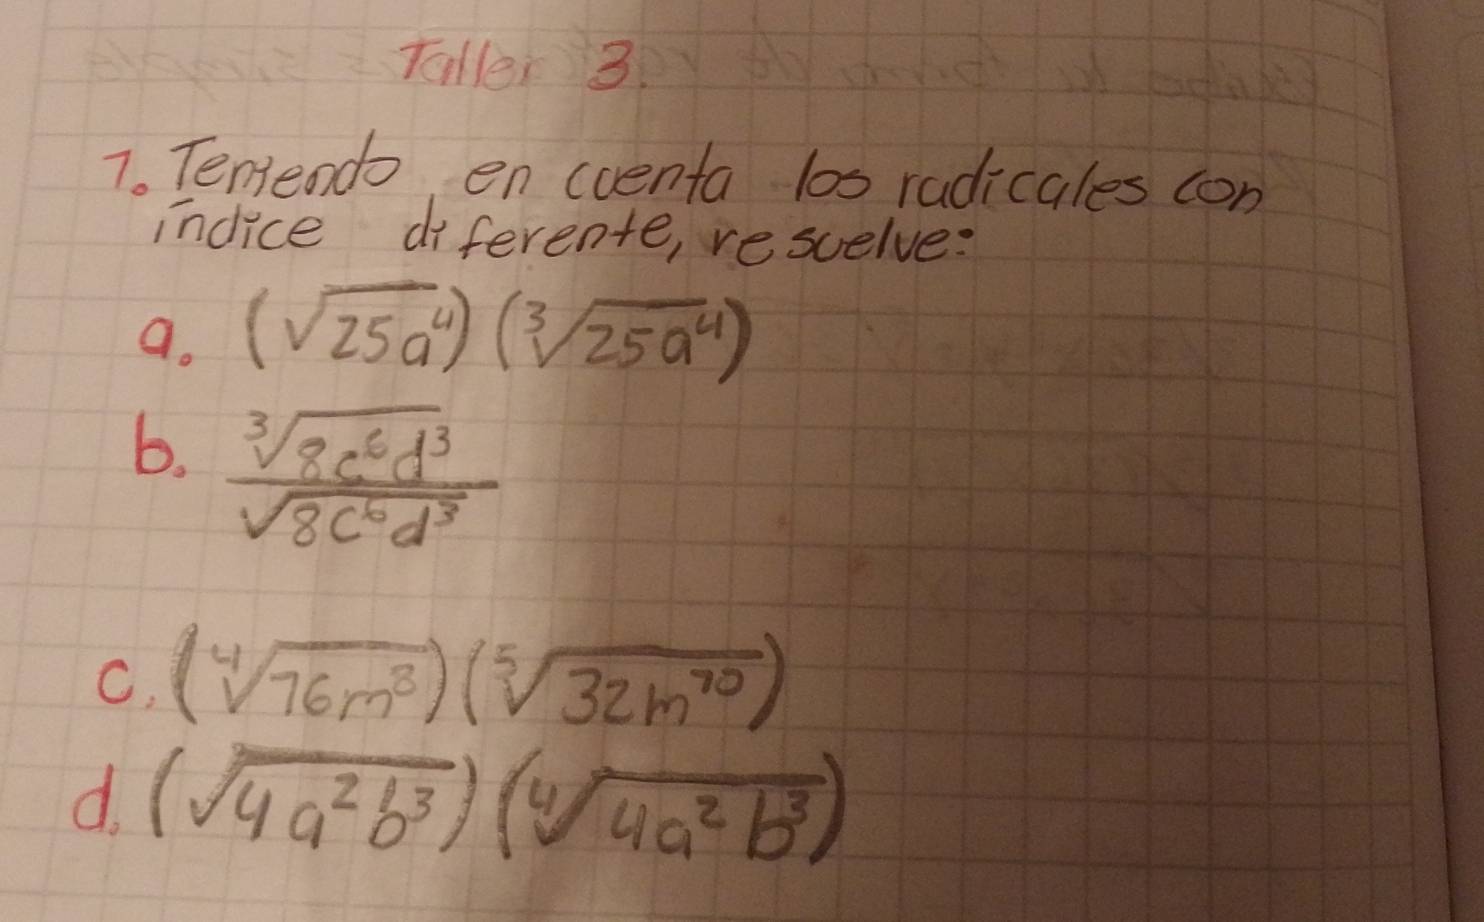 Taller 3.
1. Teniendo en cuenta los radicales con
índice diferente, resuelve:
a. (√25a⁴) (³√25a⁴)
b. ³√8c⁶d³
√8c⁶d³
c. (⁴√16m⁸) (⁵√32m¹⁰)
d. (√4a²b³) (⁴√4a²b³)